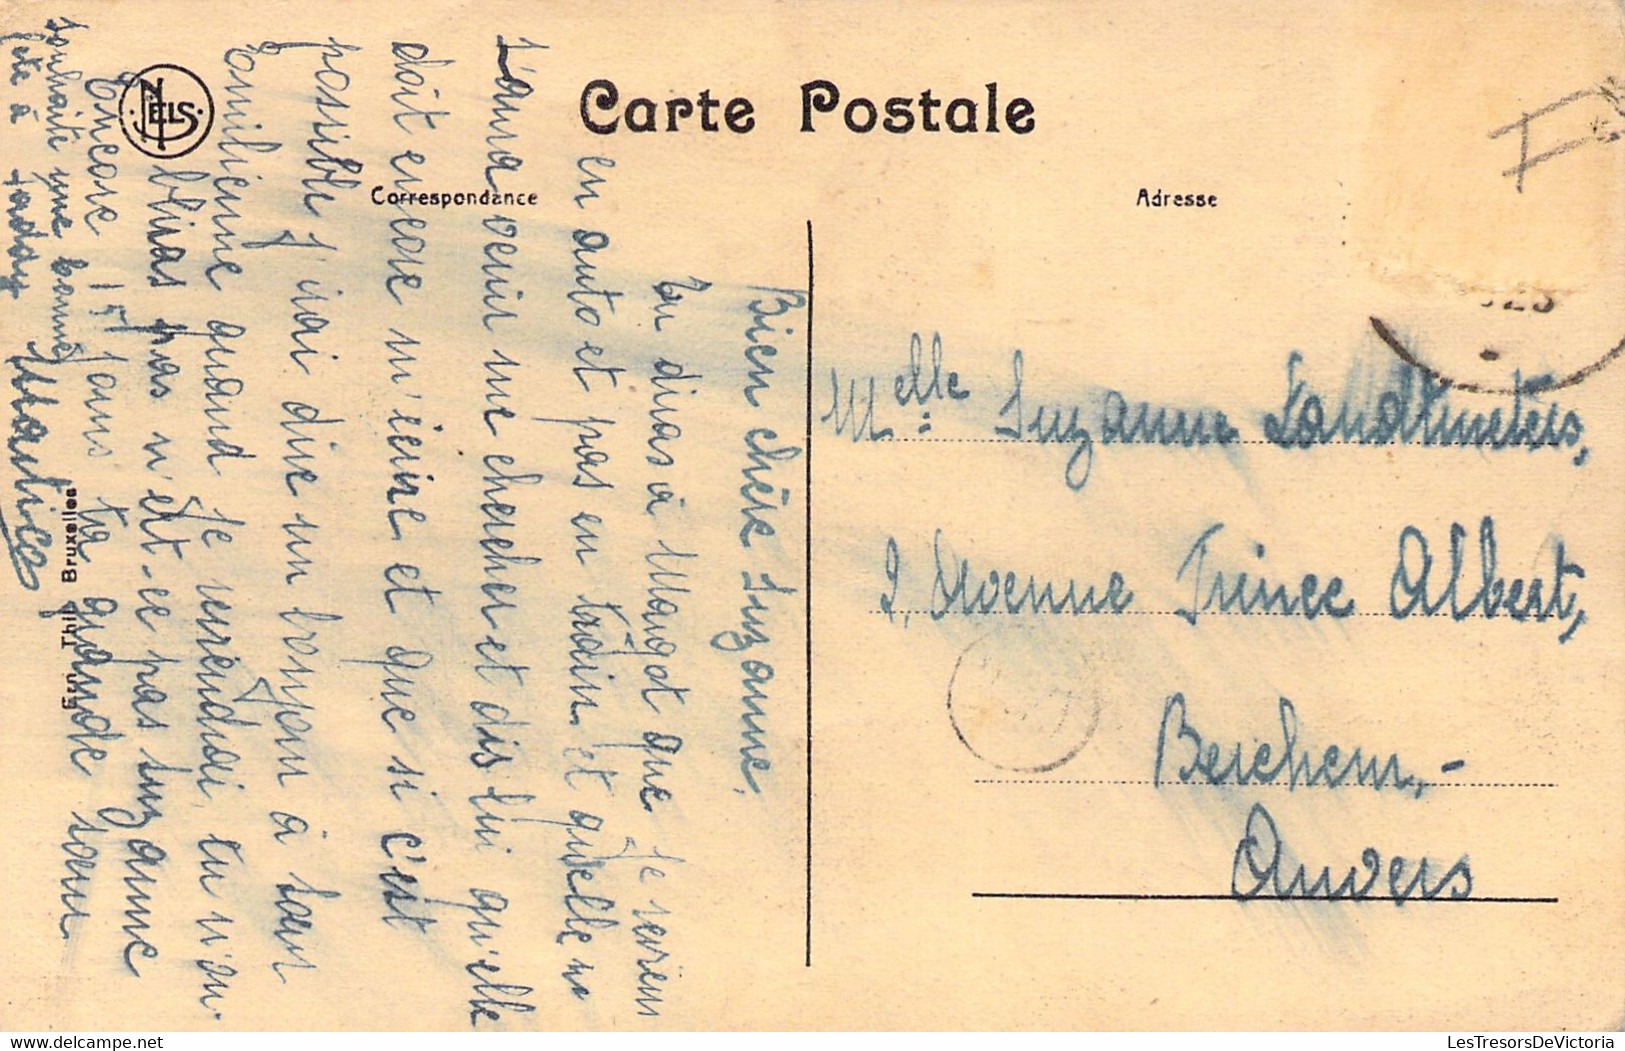 Carte Postale
Correspondance
Adresse
NELS
Ern. Thill Bruxelles
Bien chère Suzanne,
tu diras à Magot que je reviens
en auto et pas en train et qu'elle
n'aura venir me chercher et dis lui qu'elle
doit encore m'écrire et que si c'est
possible j'irai dire un bonjour à
Emilienne quand je reviendrai, tu
pas n'est-ce pas Suzanne
Encore 15 jours ta grande sœur
souhaite une bonne
fête à
Melle Suzanne Landtmeters,
2, Avenue Prince Albert,
Berchem,-
Anvers
LesTresorsDeVictoria